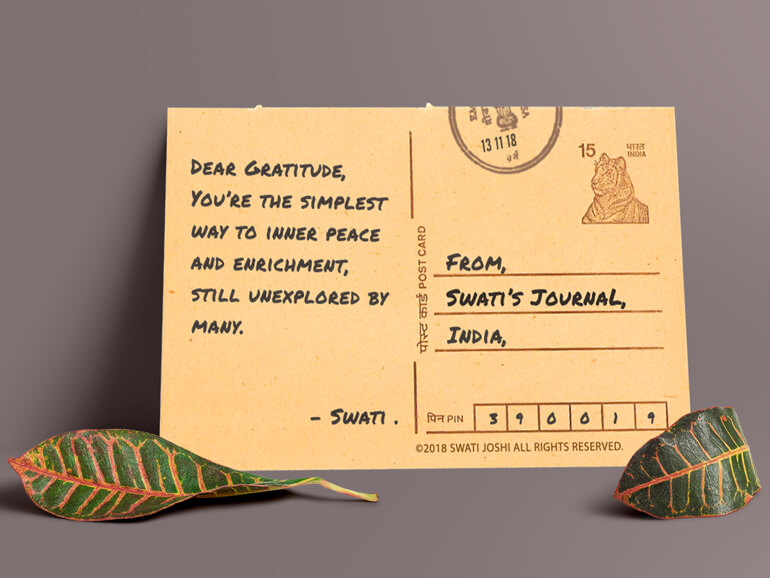 DEAR GRATITUDE,
YOU'RE THE SIMPLEST
WAY TO INNER PEACE
AND ENRICHMENT,
STILL UNEXPLORED BY
MANY.
- SWATI .
पोस्ट कार्ड POST CARD
13 11 18
15 भारत
INDIA
FROM,
SWATI'S JOURNAL,
INDIA,
पिन PIN 3 9 0 0 1 9
©2018 SWATI JOSHI ALL RIGHTS RESERVED.